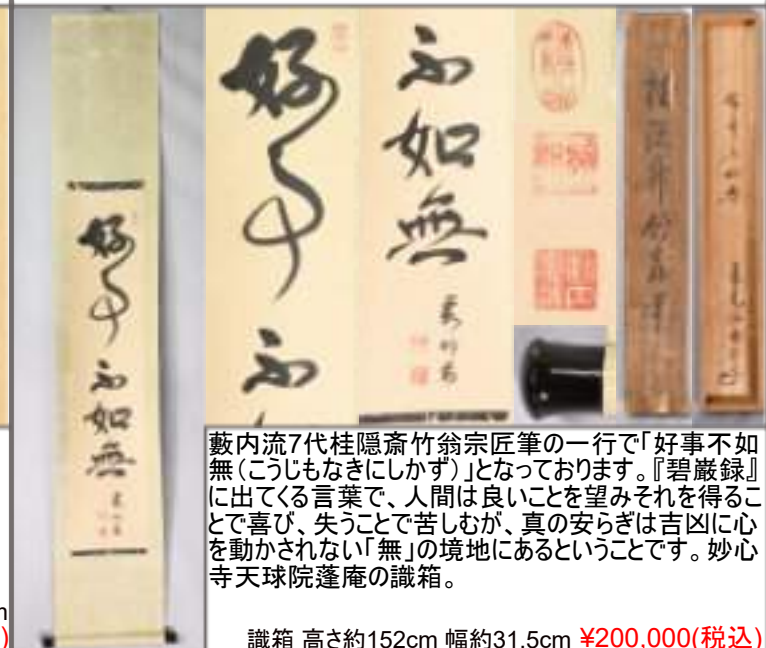 好事不如無
好事不
不如無
藪内流7代桂隠斎竹翁宗匠筆の一行で「好事不如
無(こうじもなきにしかず)」となっております。『碧巌録』
に出てくる言葉で、人間は良いことを望みそれを得るこ
とで喜び、失うことで苦しむが、真の安らぎは吉凶に心
を動かされない「無」の境地にあるということです。妙心
寺天球院蓬庵の識箱。
m
)
識箱 高さ約152cm 幅約31.5cm ¥200,000(税込)